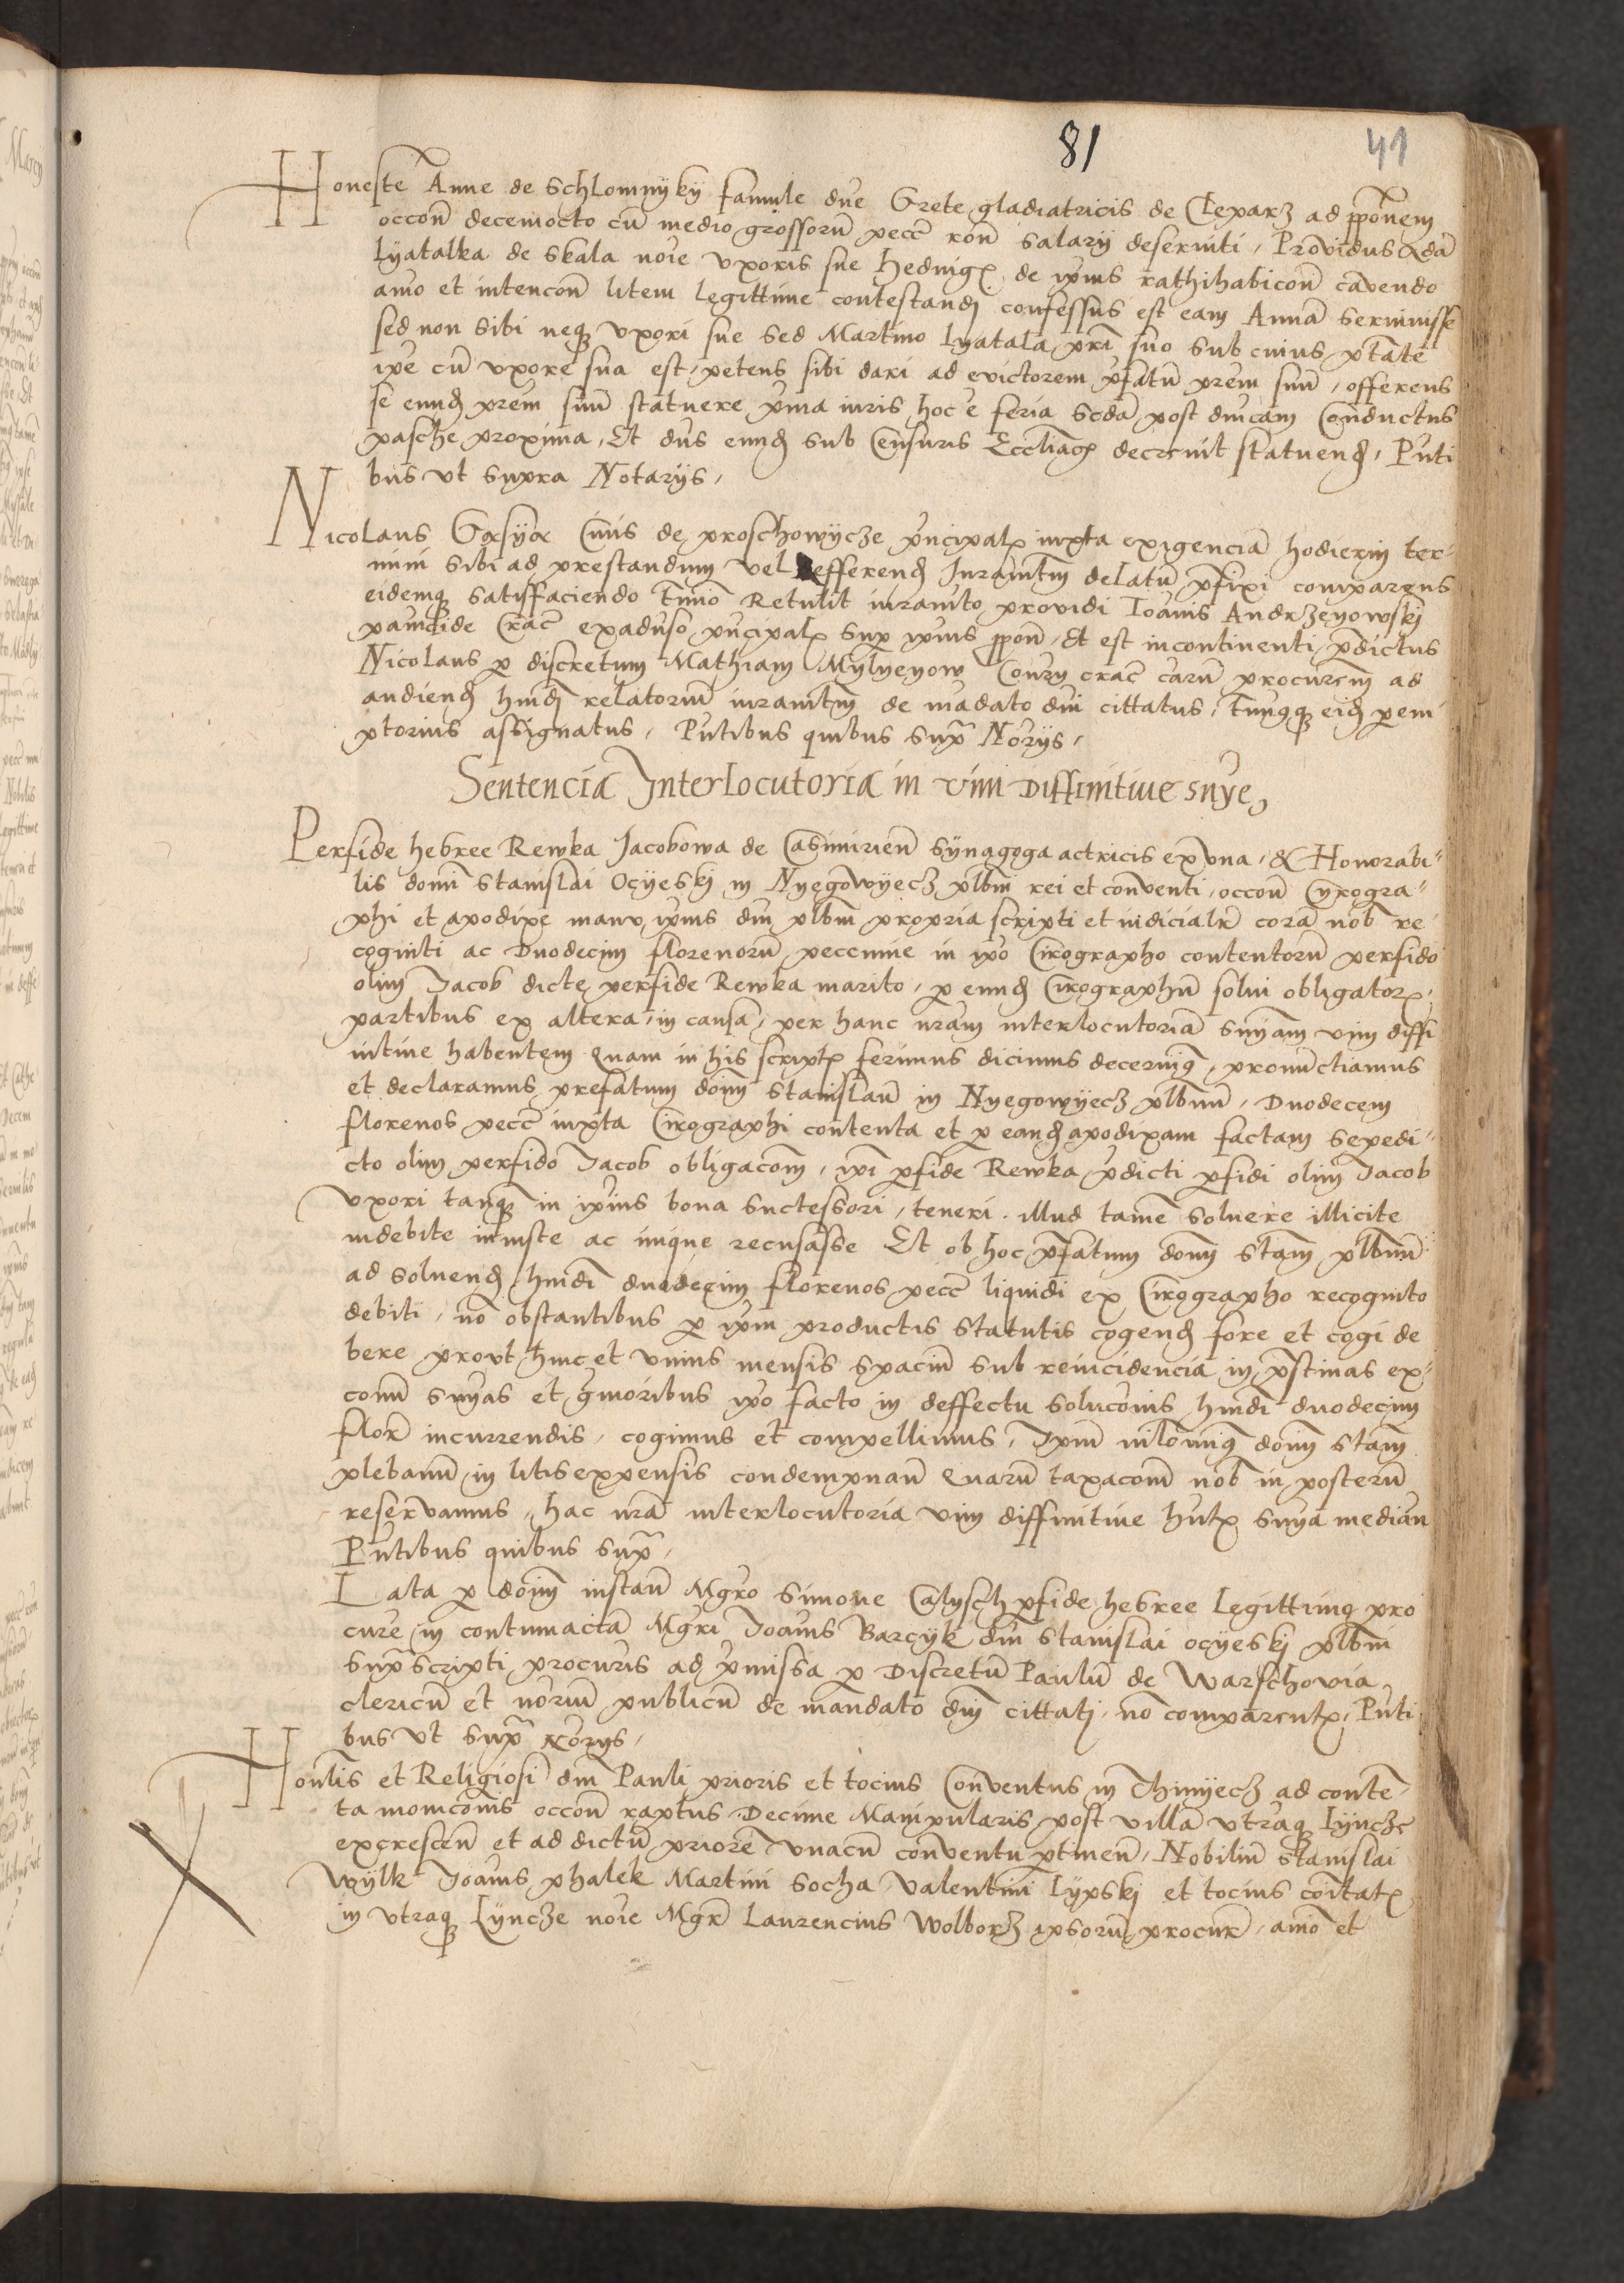 81 41
Honeste Anne de Schlomnyky famule dne Grete gladiatricis de Clepar3 ad pponem
occon decemocto cu medio grossoru pecc ron salarij deserviti, Providus Ada
Lyatalka de Skala noie uxoris sue Hedvig de ipius rathihabicon cavendo
aio et intencon litem legittime contestandi confessus est eam Anna servivisse
sed non sibi neq uxori sue sed Martino Lyatala pri suo sub cuius ptate
ipe cu uxore sua est, petens sibi dari ad evictorem pfatu prem suu, offerens
se eund prem suu statuere pma iuris hoc e feria scda post dnicam Conductus
pasche proxima, Et dns eund sub Censuris Eccliac decrevit statuend, Pnti
bus ut supra Notarijs,
Nicolaus Civis de proschowycze pncipal iuxta exigencia hodierni ter-
mini sibi ad prestandum vel efferend Iuramtm delatu pfixi comparens
eidemq satisfaciendo tmio Retulit iuramto providi Ioanis Andrzeyowskj
Crac exadvso pncipal sup ipius ppon, Et est incontinenti pdictus
Nicolaus p discretum Mathiam Mylyeyow Consry crac caru procurem ad
audiend hmdi relatoriu iuramtm de madato dni cittatus, tmusq eid pem
ptorius assignatus, Pntibus quibus supra Norijs,
Sentencia Interlocutoria in vim Diffinitive snye,
Perfide hebree Rewka Jacobowa de Casimirien Synagoga actricis ex una, & Honorabi-
lis domi Stanislai Ocyeskj in Nyegowyecz plbni rei et conventi, occon Cyrogra-
phi et apodixe manu ipius dni plbni propria scripti et iudicialr cora nob re
cogniti ac Duodecim florenoru peccunie in ipo Cirographo contentoru perfido
olim Jacob dicte perfide Rewka marito, p eund Cirographu solvi obligator,
partibus ex altera, in causa, per hanc nram interlocutoria snyam vim diffi
nitive habentem Quam in his script ferimus dicimus decernimq, pronunctiamus
et declaramus prefatum domi Stanislau in Nyegowyecz plbnu, Duodecem
florenos pecc iuxta Cirographi contenta et p eand apodixam factam sepedi-
cto olim perfido Jacob obligacom, ipi pfide Rewka pdicti pfidi olim Jacob
uxori tanq in ipius bona successori, teneri. illud tame solvere illicite
indebite iniuste ac inique recusasse Et ob hoc pfatum domi Stam plbnu
ad solvend hmdi duodecim florenos pecc liquidi ex Cirographo recognito
debiti, no obstantibus p ipm productis statutis cogend fore et cogi de
bere prout hinc et unius mensis spaciu sub reincidencia in pstinas ex-
conu snyas et gvioribus ipo facto in deffectu solucois hmdi duodecim
flor incurrendis, cogimus et compellimus, Ipm nilomiq domi Stam
plebanu in litis expensis condempnan Quaru taxacom nob in posteru
reservamus, hac nra interlocutoria vim diffinitive hnte snya median
Pntibus quibus supra,
Lata p domi instan Mgro Simone Calysch pfide hebree Legittimo pro
cure, in contumacia Mgri Joanis Barcyk dni Stanislai ocyeskj plbni
supra scripti procuris ad pmissa p Discretu Paulu de Warschovia
clericu et noriu publicu de mandato dni cittati, no comparent, Pnti
bus ut supra Norijs,
Honlis et Religiosi dni Pauli prioris et tocius Conventus in Thinyecz ad conte-
ta monicois occon raptus Decime Manipularis post villa utraq Lyncze
excrescen et ad dictu priore unacu conventu ptinen, Nobiliu Stanislai
Wylk Joanis phalek Martini Socha Valentini Lypskj et tocius coitat
in utraq Lyncze noie Mgr Laurencius Wolborz ipsoru procur, aio et